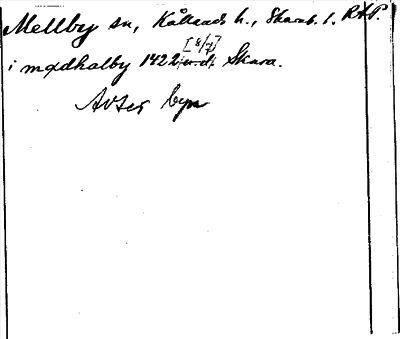 Mellby sn, Kållands h., Skarab. l. RAP.
[8/7]
i mædhalby 1422 u. d. Skara.
Avser byn